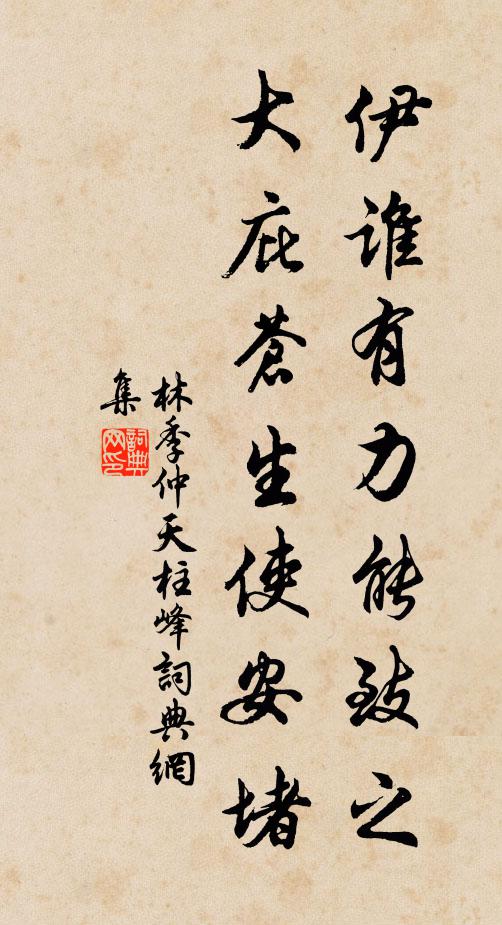 伊誰有力能致之
大庇蒼生使安堵
林季仲天柱峰詞典網
集
詞典
网印